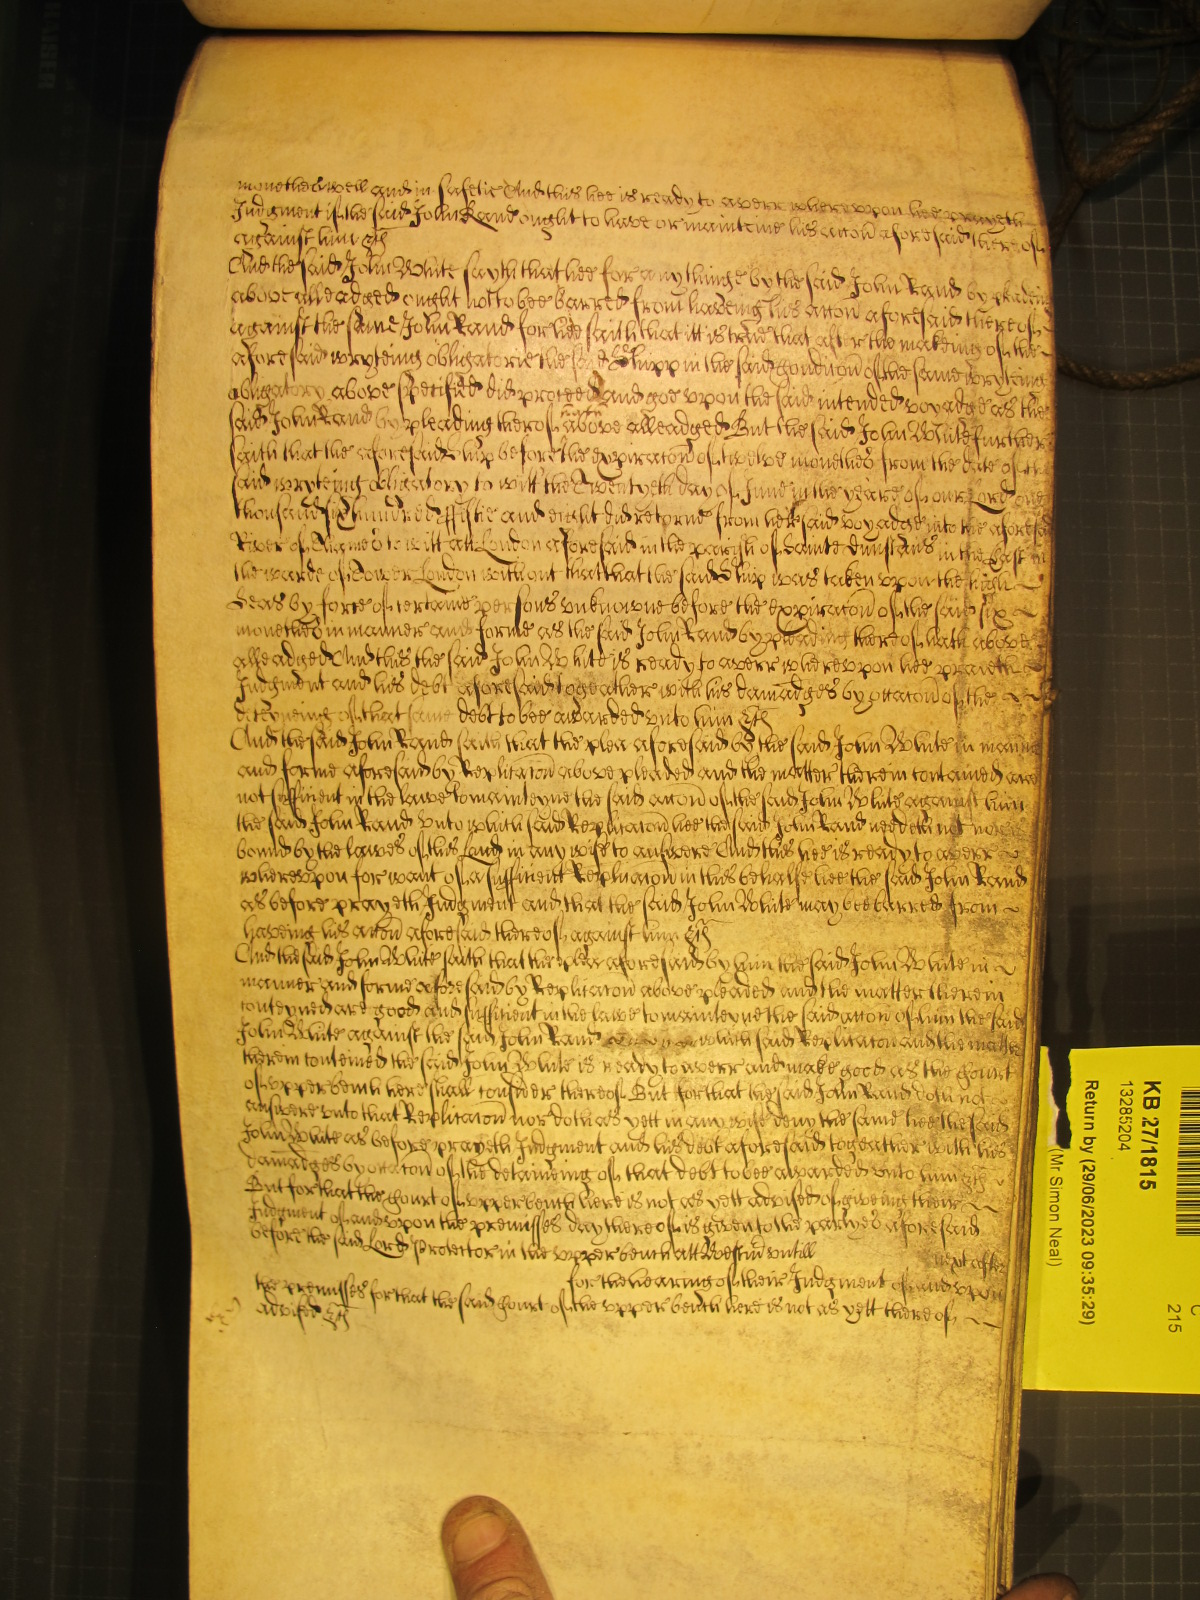 monethes well and in safetie And this hee is ready to averr wherevpon hee prayeth
Judgment if the said John Rand ought to have or mainteine his accon aforesaid thereof
against him &c
And the said John White sayth that hee for any thinge by the said John Rand by pleading
above alleadged ought not to bee barred from haveing his accon aforesaid thereof
against the same John Rand for hee saith that itt is true that after the makeing of the
aforesaid wryteing obligatorie the said Shipp in the said Condicon of the same wryteing
obligatory above specified did proceed and goe vpon the said intended voyadge as the
said John Rand by pleading thereof above alleadged But the said John White further
saith that the aforesaid Shipp before the expiracon of twelve monethes from the date of the
said wryteing obligatory to witt the Twentyeth day of June in the yeare of our Lord one
thousand six hundred fiftie and eight did returne from her said voyadge into the aforesaid
River of Thames to witt att London aforesaid in the parish of Sainte Dunstans in the East in
the warde of Tower London without that that the said Shipp was taken vpon the high
Seas by force of certaine persons vnknowne before the expiracon of the said six
monethes in manner and forme as the said John Rand by pleading thereof hath above
alleadged And this the said John White is ready to averr wherevpon hee prayeth
Judgment and his debt aforesaid togeather with his damadges by occacon of the
deteyneing of that same debt to bee awarded vnto him &c
And the said John Rand saith that the plea aforesaid by the said John White in manner
and forme aforesaid by Replicacon above pleaded and the matter therein contained are
not sufficient in the lawe to mainteyne the said accon of the said John White against him
the said John Rand vnto which said Replicacon hee the said John Rand needeth not nor is
bound by the lawes of this Land in any wise to answere And this hee is ready to averr
wherevpon for want of a sufficient Replicacon in this behalfe hee the said John Rand
as before prayeth Judgment and that the said John White may bee barred from
haveing his accon aforesaid thereof against him &c
And the said John White saith that the plea aforesaid by him the said John White in
manner and forme aforesaid by Replicacon above pleaded and the matter therein
conteyned are good and sufficient in the lawe to mainteyne the said accon of him the said
John White against the said John Rand which said Replicacon and the matter
therein conteined the said John White is ready to averr and make good as the Court
of vpper bench here shall consider thereof But for that the said John Rand doth not
answere vnto that Replicacon nor doth as yett in any wise deny the same hee the said
John White as before prayeth Judgment and his debt aforesaid togeather with his
damadges by occacon of the detaineing of that debt to bee awarded vnto him &c
But for that the Court of vpper bench here is not as yett advised of giveing their
Judgment of and vpon the premisses day thereof is given to the partyes aforesaid
before the said Lord Protector in the vpper bench att Westm vntill next after
for the heareing of their Judgment of and vpon
the premisses for that the said Court of the vpper bench here is not as yett thereof
advised &c
KB 27/1815
13285204
Return by (29/06/2023 09:35:29)
(Mr Simon Neal)
C
215